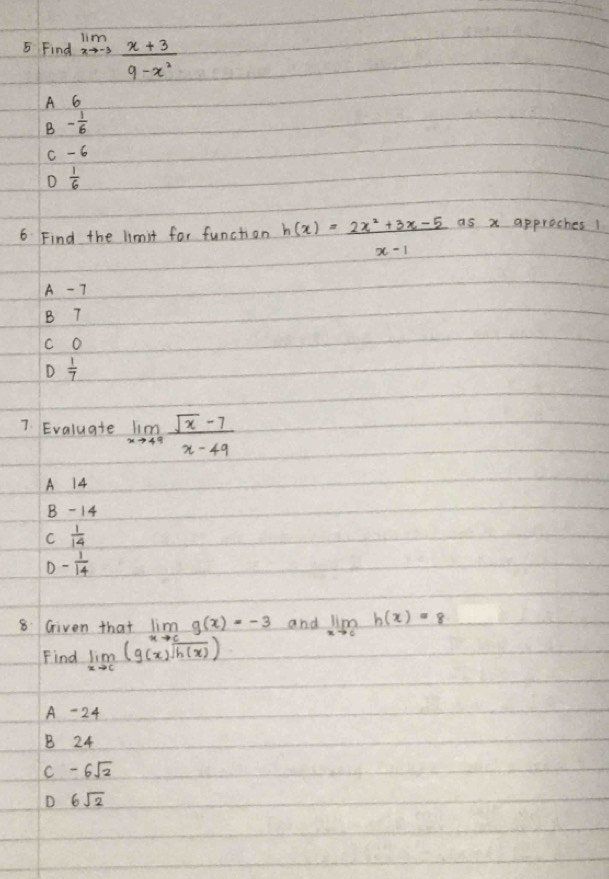 5 Find lim x→-3 (x + 3)/(9 - x²)
A 6
B -1/6
C -6
D 1/6
6 Find the limit for function h(x) = (2x² + 3x - 5)/(x - 1) as x approches 1
A -7
B 7
C 0
D 1/7
7 Evaluate lim x→49 (√x - 7)/(x - 49)
A 14
B -14
C 1/14
D -1/14
8 Given that lim x→c g(x) = -3 and lim x→c h(x) = 8
Find lim x→c (g(x)√h(x))
A -24
B 24
C -6√2
D 6√2